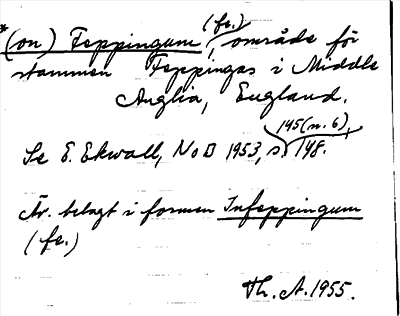 *(on) Feppingum (fe.), område för
stammen Feppingas i Middle
Anglia, England.
Se E. Ekwall, NoB 1953, s. 145 (n. 6), 148.
Äv. belagt i formen Infeppingum
(fe.)
Th. A. 1955.